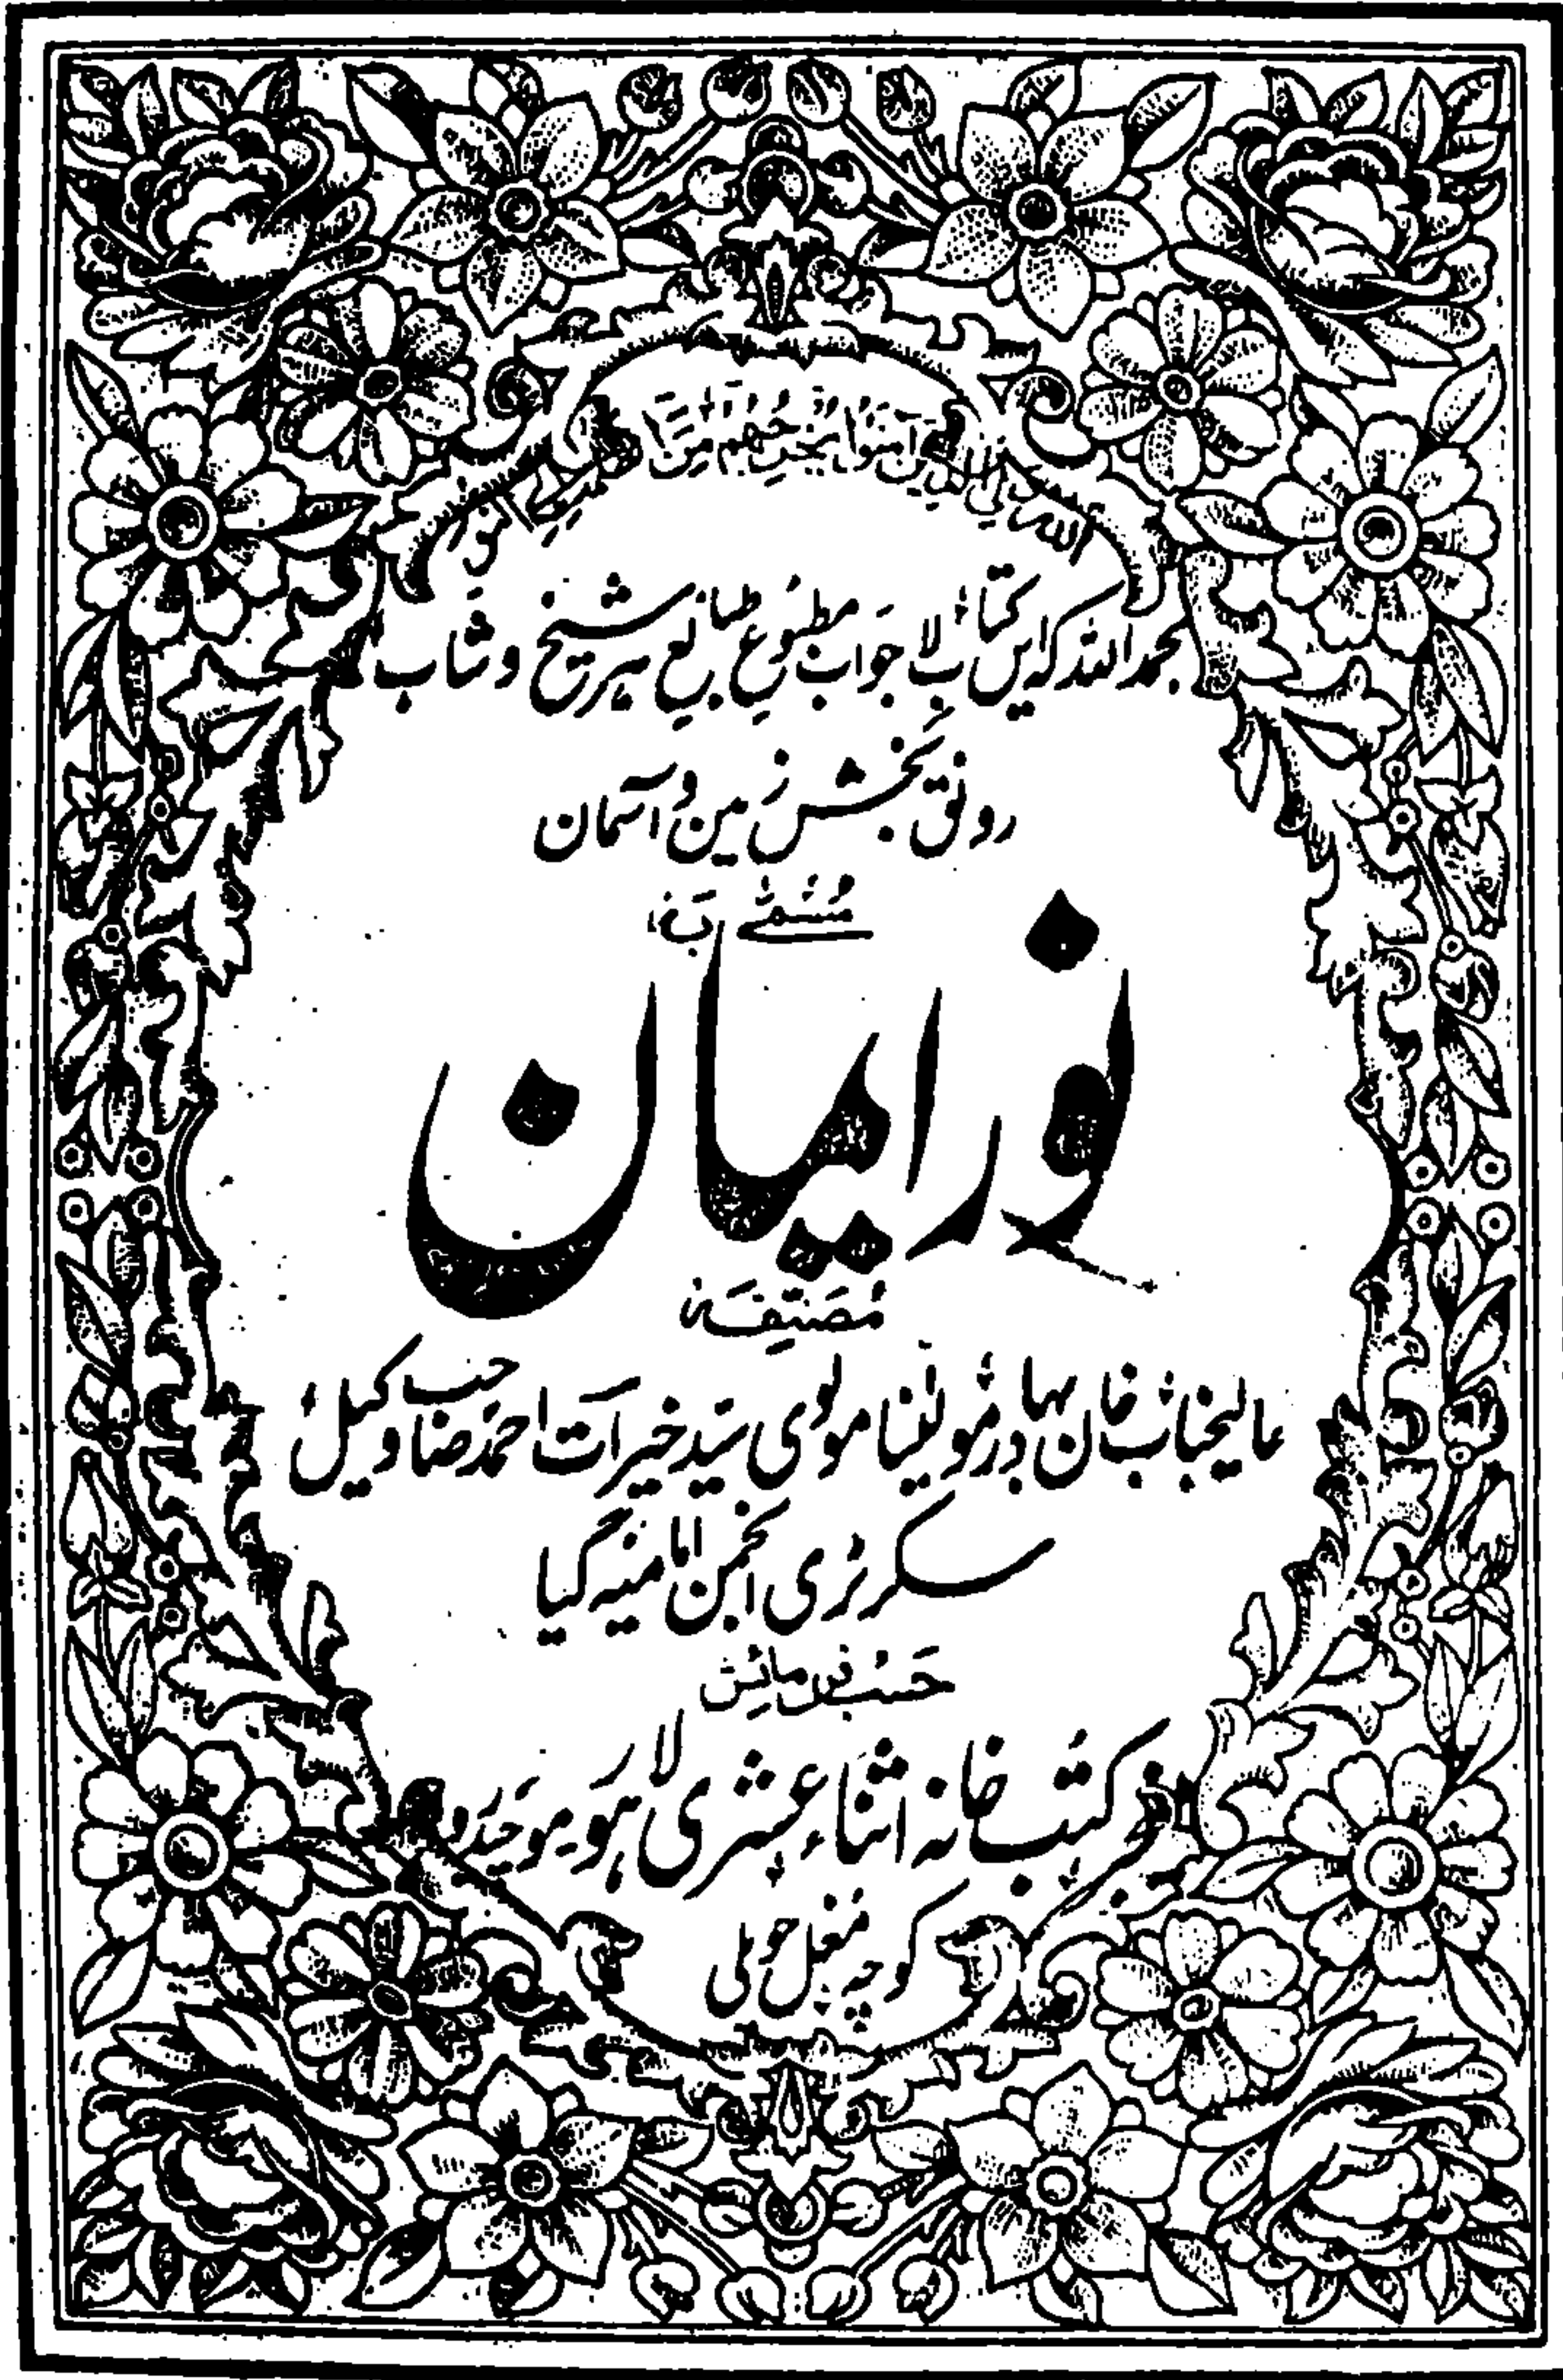 اللہ ولی الذین آمنوا یخرجھم من الظلمات الی النور
بحمد اللہ کہ ایں کتاب لا جواب مطبوع طبایع ہر شیخ و شاب
رونق بخش زمین و آسمان
مسمّٰے بہ
نور ایمان
مصنفہ
عالیجناب خان بہادر مولٰینا مولوی سید خیرات احمد صاحب وکیل
سکرٹری انجمن امامیہ گیا
حسب فرمائش
کتب خانہ اثناء عشری لاہور موچیدروازہ
کوچہ مغل حویلی